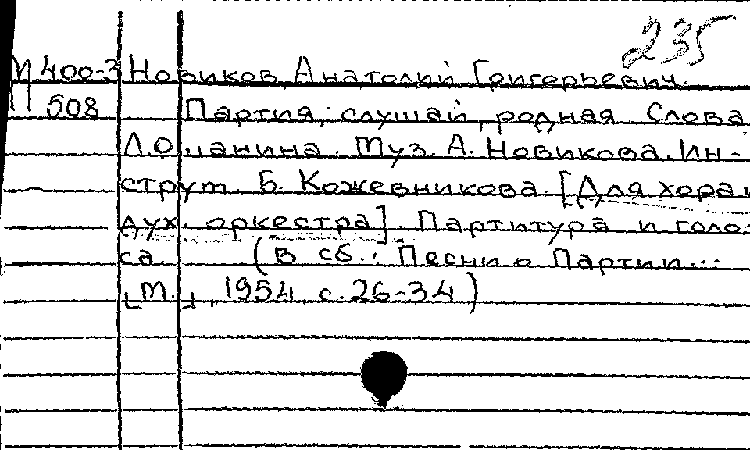 235
М 400-3 Новиков, Анатолий Григорьевич.
П 508 Партия, слушай, родная Слова
Л.Ошанина. Муз. А. Новикова. Ин-
струт. Б. Кожевникова. [Для хора и
дух. оркестра]. Партитура и голо-
са (В сб.: Песни о Партии...
[М.], 1954, с. 26-34)